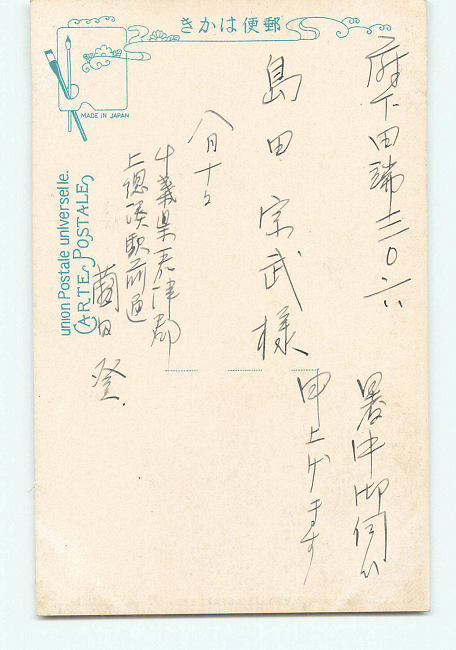 きかは便郵
MADE IN JAPAN
union Postale universelle.
CARTE POSTALE
府下田端三〇六
島田宗武様
暑中御伺ひ
申上げます
八月十日
千葉県君津郡
駅前通
登.